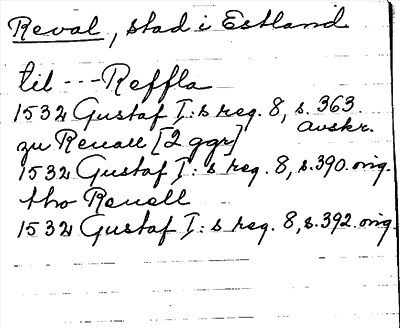 Reval, stad i Estland
til --- Reffla
1532 Gustaf I:s reg. 8, s. 363.
avskr.
zu Reuall [2 ggr]
1532 Gustaf I:s reg. 8, s. 390. orig.
tho Reuell
1532 Gustaf I:s reg. 8, s. 392. orig.